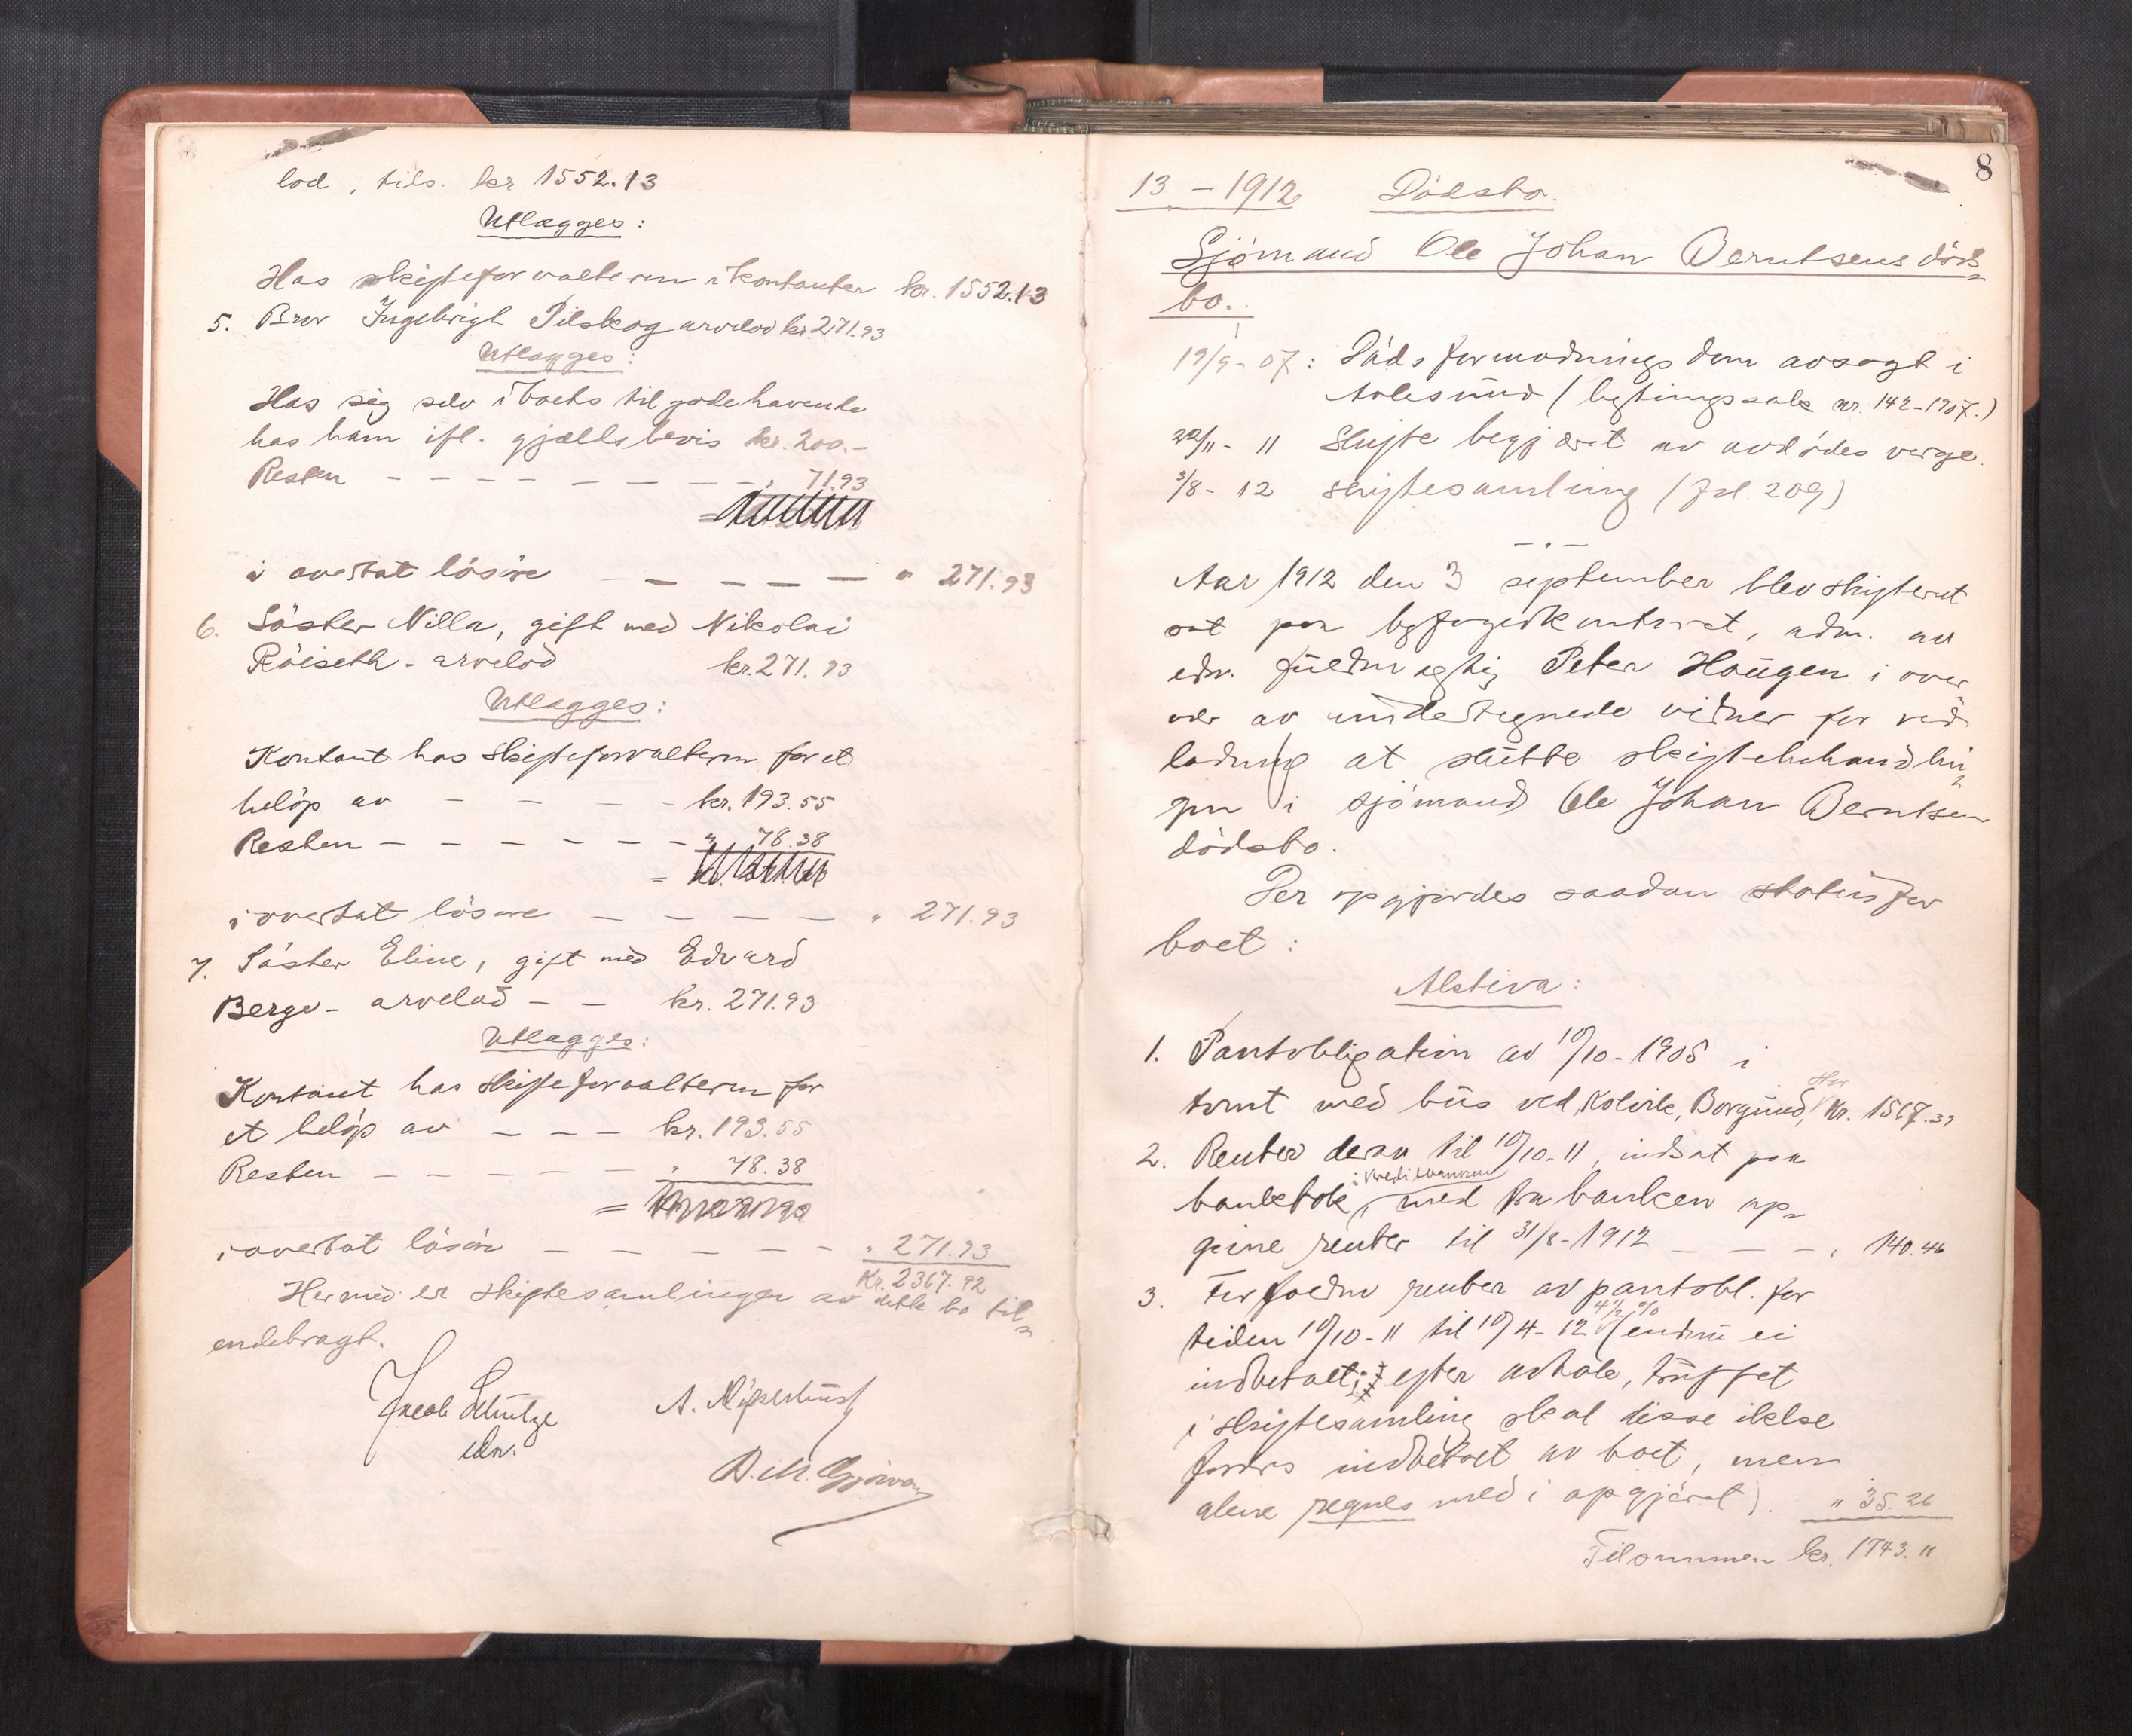 lod, tils. kr 1552.13
Utlægges:
Hos skifteforvalteren i kontanter kr. 1552.13
5. Bror Ingebrigt Pilskog arvelod kr. 271.93
Utlægges:
Hos sig selv i boets tilgodehavende
hos ham ifl. gjældsbevis kr. 200.-
Resten - - - - - - - - - " 71.93
i overtat lösöre - - - - - " 271.93
6. Söster Nilla, gift med Nikolai
Röiseth - arvelod kr. 271.93
Utlægges:
Kontant hos skifteforvalteren for et
belöp av - - - - kr. 193.55
Resten - - - - - - " 78.38
i overtat lösöre - - - - " 271.93
7. Söster Eline, gift med Edvard
Berge - arvelod - - kr. 271.93
Utlægges:
Kontant hos skifteforvalteren for
et belöp av - - - kr. 193.55
Resten - - - - - " 78.38
i overtat lösöre - - - - - - " 271.93
Kr. 2367.92
Hermed er skiftesamlingen av dette bo til-
endebragt.
Jacob Schutze
edv.
A.
B. M.
8
13 - 1912 Dödsbo.
Sjömand Ole Johan Berntsens döds-
bo.
19/9 - 07: Dödsformodningsdom avsagt i
Aalesund (bytingssak nr. 142-1907.)
22/11 - 11 Skifte begjæret av avdödes verge.
3/8 - 12 Skiftesamling (fol. 209)
Aar 1912 den 3 september blev skifteret
sat paa byfogedkontoret, adm. av
edv. fuldmægtig Peter Haugen i over
vær av undertegnede vidner for ved
at slutte skiftebehandlin-
gen i sjömand Ole Johan Berntsen
dödsbo.
Der opgjordes saadan status for
boet:
Aktiva:
1. Pantobligation av 10/10 - 1908 i
tomt med hus ved Kolvik, Borgund, stor Kr. 1567.39
2. Renter derav til 10/10 - 11, indsat paa
bankbok i Kreditbanken, med fra banken op-
givne renter til 31/8 - 1912 - - - " 140.46
3. Forfaldne renter av pantobl. for
tiden 10/10 - 11 til 10/4 - 12 4 1/2 % (endnu ei
indbetalt; efter avtale, truffet
i skiftesamling skal disse ikke
fordres indbetalt av boet, men
alene regnes med i opgjöret). " 35.26
Tilsammen kr. 1743.11